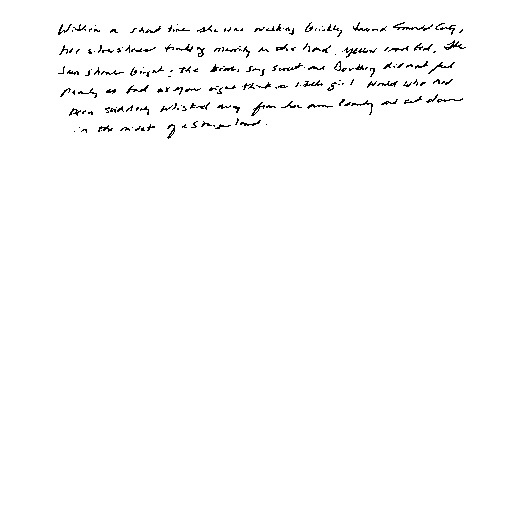 Within a short time she was walking briskly toward Emerald City,
her silver shoes tinkling merrily on the hard yellow road bed. The
sun shone bright. The birds sang sweet and Dorothy did not feel
nearly as bad as you might think a little girl would who had
been suddenly whisked away from her own country and set down
in the midst of a strange land.